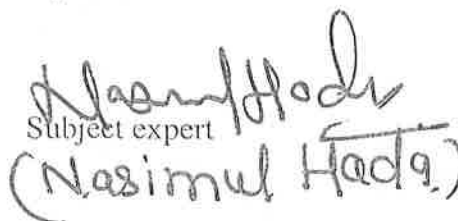 Nasimul Hoda
Subject expert
(Nasimul Hada.)